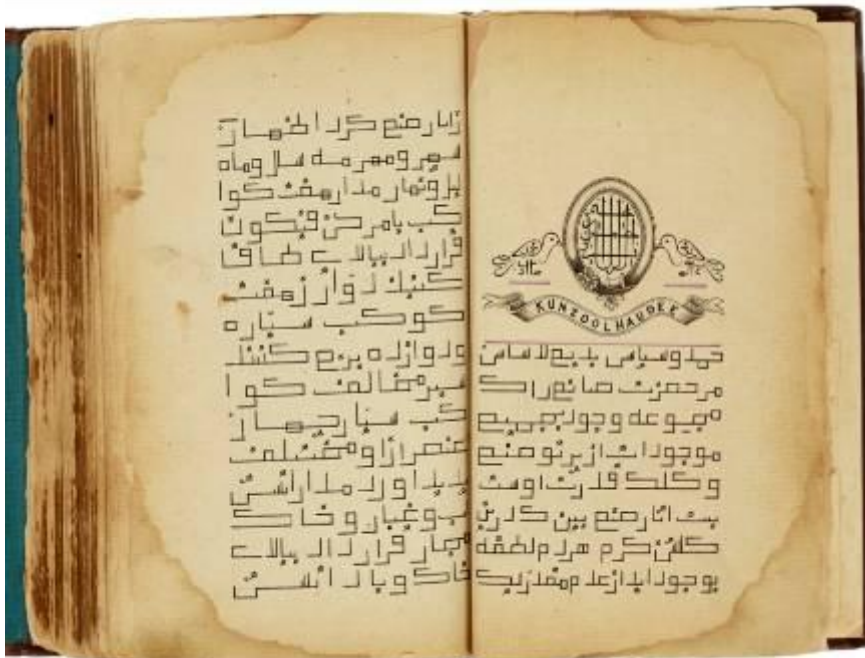 KUNZOOLHAUDEE
حمد و سپاس بدیع لاساس
مر حضرت صانع را ک
مجموعه وجود بجمیع
موجودات از پرتو صنع
و کلک قدرت اوست
بیت اثار صنع بین که درین
گلشن کرم هر دم لطیفه
بوجود اید از عدم
زاثار صنع کرد اظهار
سپهر و مهر مه سال و ماه
لیل و نهار مدار هفت کوا
کب بامر کن فیکون
قرار داد ببالای طاق
گنبد دوار ز هفت
کوکب سیاره
و دوازده برج کنند
سیر مخالف کوا
کب سیار چهار
عنصر ازو مختلف
پدید اورد مدار اتش
و غبار و خاک
قرار داد ببالای
خاک و باد اتش